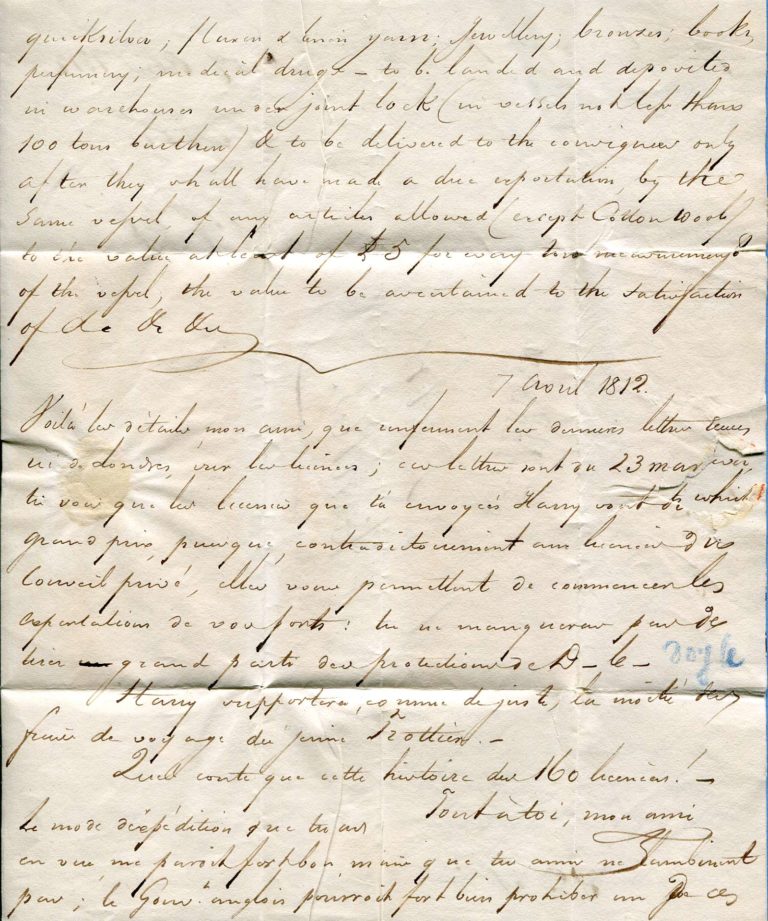 quicksilver; flaxen & linen yarn; Jewellery; bronzes; books,
perfumery; medical drugs – to be landed and deposited
in warehouses under joint lock (in vessels not less than
100 tons burthen) & to be delivered to the consignees only
after they shall have made a due exportation, by the
same vessel, of any articles allowed (except Cotton wool)
to the value at least of £5 for every ton measurement
of the vessel, the value to be ascertained to the satisfaction
of &c &c &c
7 avril 1812.
Voilà les détails mon ami, que renferment les dernieres lettres reçues
ici de Londres, sur les licences; ces lettres sont du 23 mars
tu vois que les licences que t'a envoyées Harry sont de
grand prix, puisque, contradictoirement aux licences du
Conseil privé, elles vous permettent de commencer les
exportations de vos ports: tu ne manqueras pas de
tirer grand parti des protections de D–le–
doyle
Harry supportera, comme de juste, la moitié des
frais de voyage du jeune Trottier. –
Quel conte que cette histoire des 160 licences! –
Tout à toi, mon ami
Le mode d'expédition que tu as
en vue me paroit fort bon mais que tes amis ne lambinent
pas; le Gouvt anglois pourroit fort bien prohiber un de ces